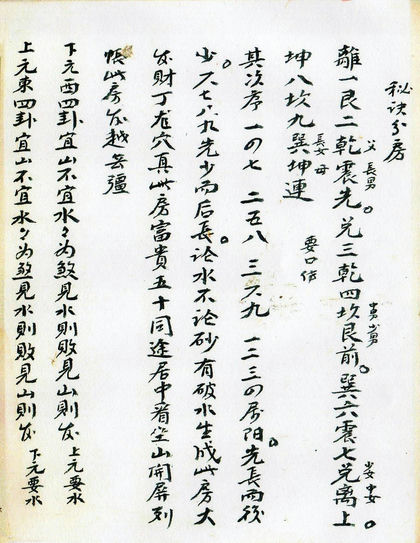 秘诀分房
父 長男
離一艮二乾震先。兑三乾四坎艮前。巽六震七兑离上。
長女 母
坤八坎九巽坤連
其次序一四七 二五八 三六九 一二三四房阳。先長而後
少。六七八九先少而后長。論水不論砂有破水生成此房大
发財丁若穴真此房富貴五十同途居中看坐山開屏列
帳此房发越無疆
下元西四卦宜山不宜水々为煞見水則敗見山則发 上元要水
上元東四卦宜山不宜水々为煞見水則敗見山則发 下元要水